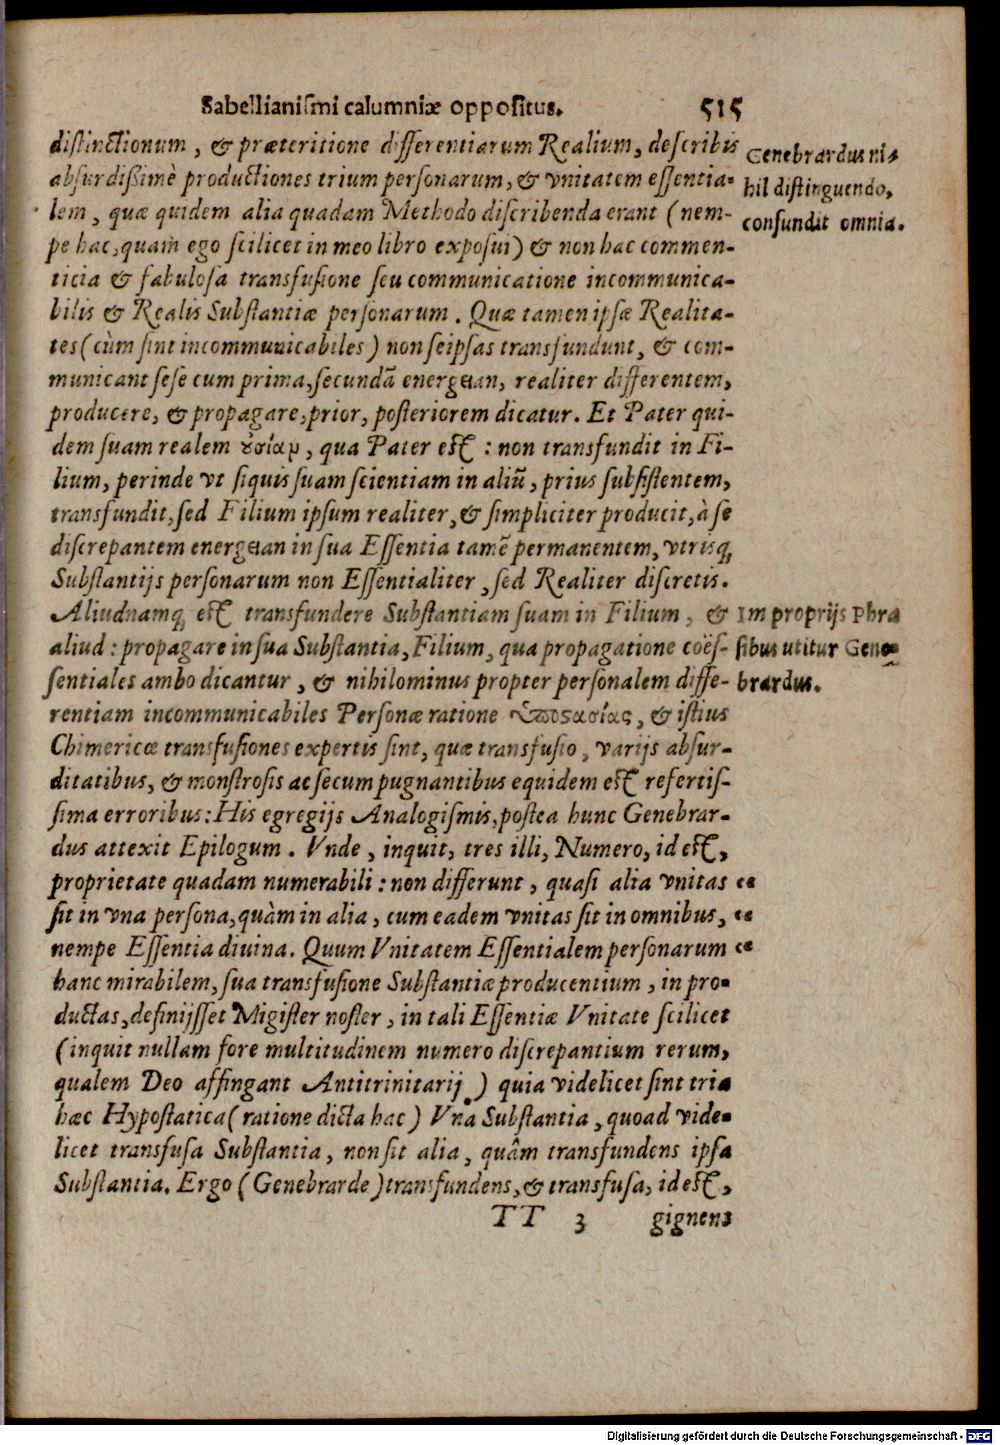 Sabellianiſmi calumniæ oppoſitus. 515
diſtinctionum, & præteritione differentiarum Realium, deſcribis
abſurdißimè productiones trium perſonarum, & vnitatem eſſentia-
lem, quæ quidem alia quadam Methodo diſcribenda erant (nem-
pe hac, quam ego ſcilicet in meo libro expoſui) & non hac commen-
ticia & fabuloſa transfuſione ſeu communicatione incommunica-
bilis & Realis Subſtantiæ perſonarum. Quæ tamen ipſæ Realita-
tes (cùm ſint incommunicabiles) non ſeipſas transfundunt, & com-
municant ſeſe cum prima, ſecundā energeian, realiter differentem,
producere, & propagare, prior, poſteriorem dicatur. Et Pater qui-
dem ſuam realem ȣσίαμ, qua Pater eſt: non transfundit in Fi-
lium, perinde vt ſiquis ſuam ſcientiam in aliū, prius ſubſiſtentem,
transfundit, ſed Filium ipſum realiter, & ſimpliciter producit, à ſe
diſcrepantem energeian in ſua Eſſentia tamē permanentem, vtriſq;
Subſtantijs perſonarum non Eſſentialiter, ſed Realiter diſcretis.
Aliud namq; eſt transfundere Subſtantiam ſuam in Filium, &
aliud: propagare in ſua Subſtantia, Filium, qua propagatione coëſ-
ſentiales ambo dicantur, & nihilominus propter perſonalem diffe-
rentiam incommunicabiles Perſonæ ratione ὑποςασίας, & iſtius
Chimericæ transfuſiones expertis ſint, quæ transfuſio, varijs abſur-
ditatibus, & monſtroſis ac ſecum pugnantibus equidem eſt refertiſ-
ſima erroribus: His egregijs Analogiſmis, poſtea hunc Genebrar-
dus attexit Epilogum. Vnde, inquit, tres illi, Numero, id eſt,
proprietate quadam numerabili: non differunt, quaſi alia vnitas “
ſit in vna perſona, quàm in alia, cum eadem vnitas ſit in omnibus, “
nempe Eſſentia diuina. Quum Vnitatem Eſſentialem perſonarum “
hanc mirabilem, ſua transfuſione Subſtantiæ producentium, in pro-
ductas, definijſſet Migiſter noſter, in tali Eſſentiæ Vnitate ſcilicet
(inquit nullam fore multitudinem numero diſcrepantium rerum,
qualem Deo affingant Antitrinitarij.) quia videlicet ſint tria
hæc Hypoſtatica (ratione dicta hac) Vna Subſtantia, quoad vide-
licet transfuſa Subſtantia, non ſit alia, quâm transfundens ipſa
Subſtantia. Ergo (Genebrarde) transfundens, & transfuſa, id eſt,
TT 3 gignens
Genebrardus ni-
hil diſtinguendo,
confundit omnia.
Improprijs Phra
ſibus utitur Gene-
brardus.
Digitalisierung gefördert durch die Deutsche Forschungsgemeinschaft - DFG